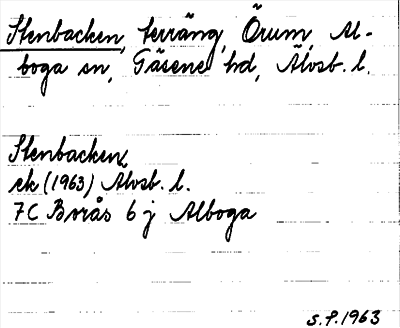 Stenbacken, terräng, Örum, Al-
boga sn, Gäsene hd, Älvsb. l.
Stenbacken,
ek (1963) Älvsb. l.
7C Borås 6 j Alboga
S.P. 1963